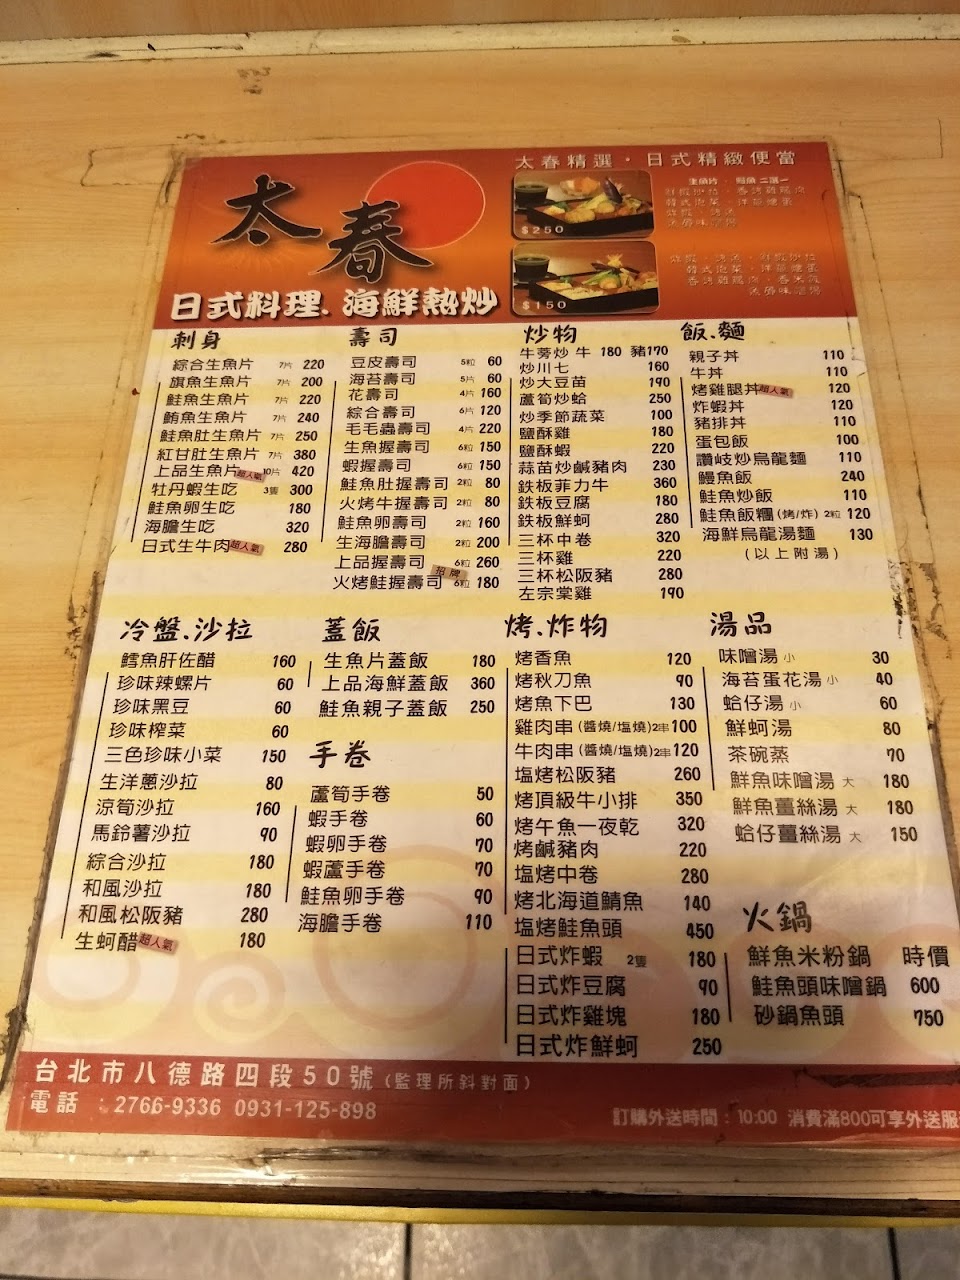 太春精選・日式精緻便當
太春
日式料理. 海鮮熱炒
$250
$150
刺身
綜合生魚片 7片 220
旗魚生魚片 7片 200
鮭魚生魚片 7片 220
鮪魚生魚片 7片 240
鮭魚肚生魚片 7片 250
紅甘肚生魚片 7片 380
上品生魚片 超人氣 10片 420
牡丹蝦生吃 3隻 300
鮭魚卵生吃 180
海膽生吃 320
日式生牛肉 超人氣 280
壽司
豆皮壽司 5粒 60
海苔壽司 5片 60
花壽司 4片 160
綜合壽司 6片 120
毛毛蟲壽司 4片 220
生魚握壽司 6粒 150
蝦握壽司 6粒 150
鮭魚肚握壽司 2粒 80
火烤牛握壽司 2粒 80
鮭魚卵壽司 2粒 160
生海膽壽司 2粒 200
上品握壽司 6粒 260
火烤鮭握壽司 招牌 6粒 180
炒物
牛蒡炒 牛 180 豬170
炒川七 160
炒大豆苗 190
蘆筍炒蛤 250
炒季節蔬菜 100
鹽酥雞 180
鹽酥蝦 220
蒜苗炒鹹豬肉 230
鉄板菲力牛 360
鉄板豆腐 180
鉄板鮮蚵 280
三杯中卷 320
三杯雞 220
三杯松阪豬 280
左宗棠雞 190
飯.麵
親子丼 110
牛丼 110
烤雞腿丼 超人氣 120
炸蝦丼 120
豬排丼 110
蛋包飯 100
讚岐炒烏龍麵 110
鰻魚飯 240
鮭魚炒飯 110
鮭魚飯糰(烤/炸) 2粒 120
海鮮烏龍湯麵 130
(以上附湯)
冷盤.沙拉
鱈魚肝佐醋 160
珍味辣螺片 60
珍味黑豆 60
珍味榨菜 60
三色珍味小菜 150
生洋蔥沙拉 80
涼筍沙拉 160
馬鈴薯沙拉 90
綜合沙拉 180
和風沙拉 180
和風松阪豬 280
生蚵醋 超人氣 180
蓋飯
生魚片蓋飯 180
上品海鮮蓋飯 360
鮭魚親子蓋飯 250
手卷
蘆筍手卷 50
蝦手卷 60
蝦卵手卷 70
蝦蘆手卷 70
鮭魚卵手卷 90
海膽手卷 110
烤.炸物
烤香魚 120
烤秋刀魚 90
烤魚下巴 130
雞肉串(醬燒/塩燒)2串 100
牛肉串(醬燒/塩燒)2串 120
塩烤松阪豬 260
烤頂級牛小排 350
烤午魚一夜乾 320
烤鹹豬肉 220
塩烤中卷 280
烤北海道鯖魚 140
塩烤鮭魚頭 450
日式炸蝦 2隻 180
日式炸豆腐 90
日式炸雞塊 180
日式炸鮮蚵 250
湯品
味噌湯 小 30
海苔蛋花湯 小 40
蛤仔湯 小 60
鮮蚵湯 80
茶碗蒸 70
鮮魚味噌湯 大 180
鮮魚薑絲湯 大 180
蛤仔薑絲湯 大 150
火鍋
鮮魚米粉鍋 時價
鮭魚頭味噌鍋 600
砂鍋魚頭 750
台北市八德路四段50號(監理所斜對面)
電話 : 2766-9336 0931-125-898
訂購外送時間 : 10:00 消費滿800可享外送服